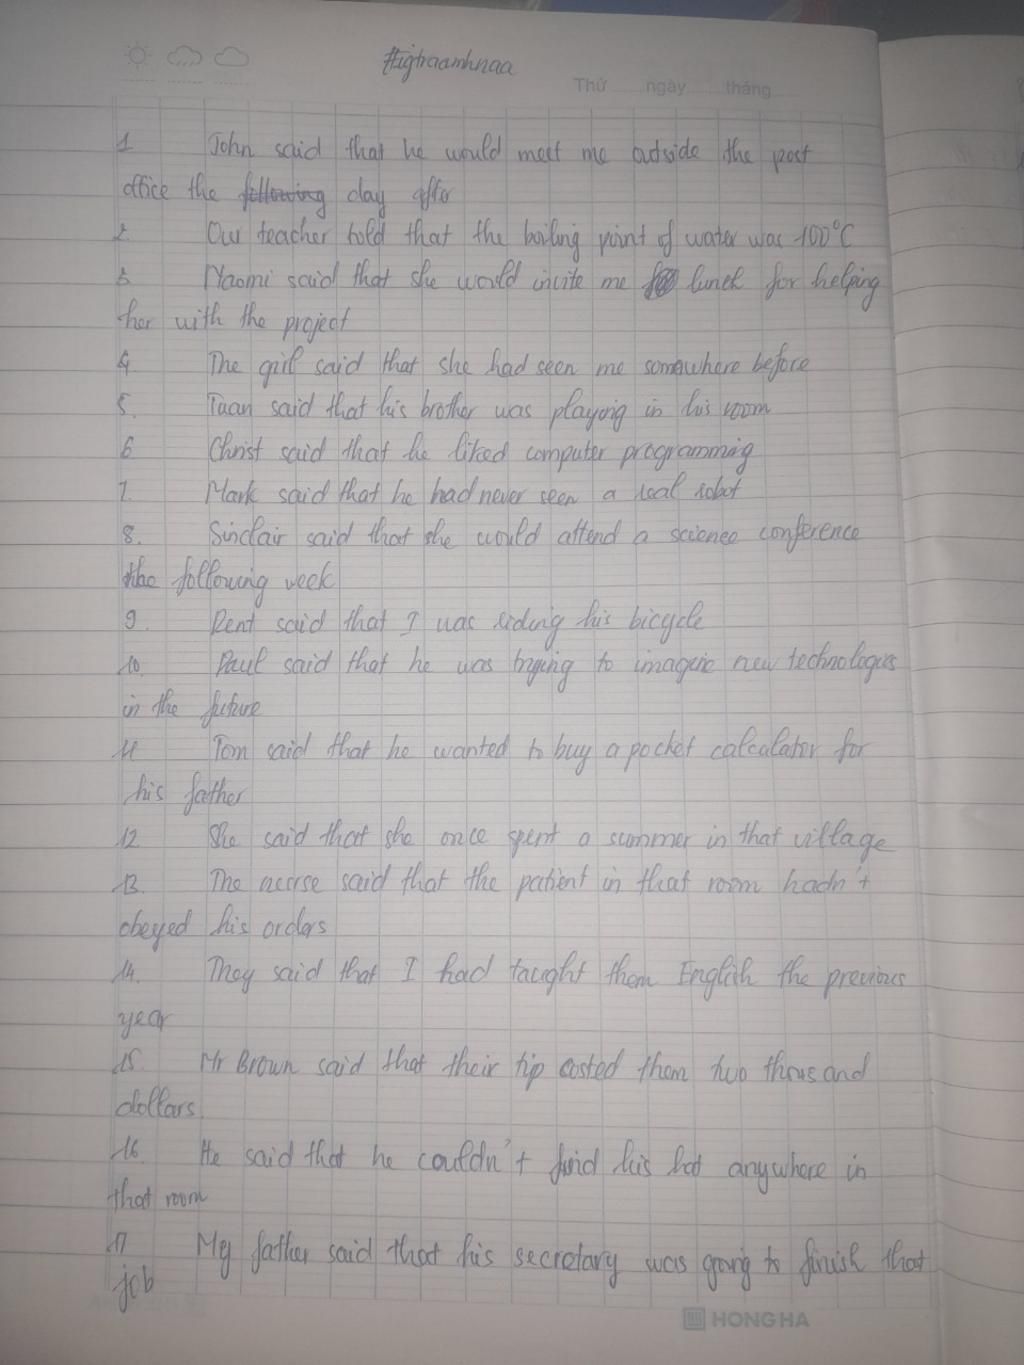 #igtraamhnaa
Thứ ngày tháng
1 John said that he would meet me outside the post
office the following day after
2. Our teacher told that the boiling point of water was 100°C
3 Naomi said that she would invite me lunch for helping
her with the project
4 The girl said that she had seen me somewhere before
5. Tuan said that his brother was playing in his room
6 Christ said that he liked computer programming
7. Mark said that he had never seen a real robot
8. Sinclair said that she would attend a science conference
the following week
9. Pent said that I was riding his bicycle
10. Paul said that he was trying to imagine new technologies
in the future
11 Tom said that he wanted to buy a pocket calculator for
his father
12 She said that she once spent a summer in that village
13. The nurse said that the patient in that room hadn't
obeyed his orders
14. They said that I had taught them English the previous
year
15. Mr Brown said that their tip costed them two thousand
dollars
16. He said that he couldn't find his hat anywhere in
that room
17 My father said that his secretary was going to finish that
job
HONG HA